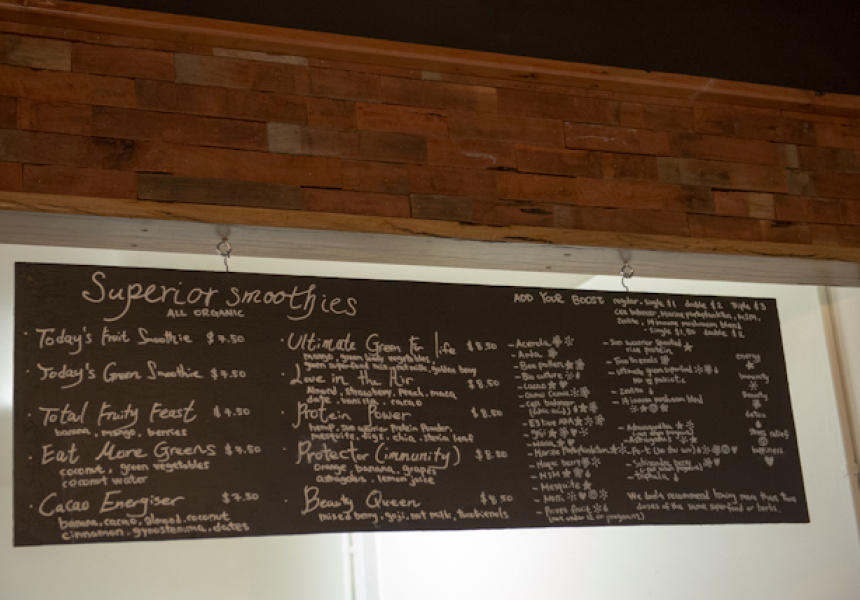 Superior smoothies
ALL ORGANIC
· Today's Fruit Smoothie $7.50
· Today's Green Smoothie $7.50
· Total Fruity Feast $7.50
banana, mango, berries
· Eat More Greens $7.50
coconut, green vegetables
coconut water
· Cacao Energiser $7.50
banana, cacao, almond, coconut
cinnamon, gynostemma, dates
· Ultimate Green Fo life $8.50
mango, green leafy vegetables,
green superfood mix, nut milk, golden berry
· Love in the Air $8.50
Almond, strawberry, Peach, maca
date, vanilla, cacao
· Protein Power $8.50
hemp, sun warrior Protein Powder,
mesquite, figs, chia, stevia leaf
· Protector (immunity) $8.50
orange, banana, grapes
astragalus, lemon juice
· Beauty Queen $8.50
mixed berry, goji, nut milk,
ADD YOUR BOOST regular, single $1 double $2 Triple $3
Cell balancer, Marine phytoplankton,
Zeolite, 14 immune mushroom blend
Single $1.50 double $2
- Acerola
- Bee pollen
- cacao
- Camu Camu
- Cell balancer
- goji
- Maca
- Marine Phytoplankton
- Magic berry
- MSM
- Mesquite
- Noni
- Sun warrior sprouted
rice protein
- ultimate green superfood
- Zeolite
- 14 immune mushroom blend
- Ashwagandha
- Astragalus
- Schizandra berry
- Triphala
energy
immunity
beauty
detox
stress relief
happiness
We don't recommend having more than two
doses of the same superfood or herbs.